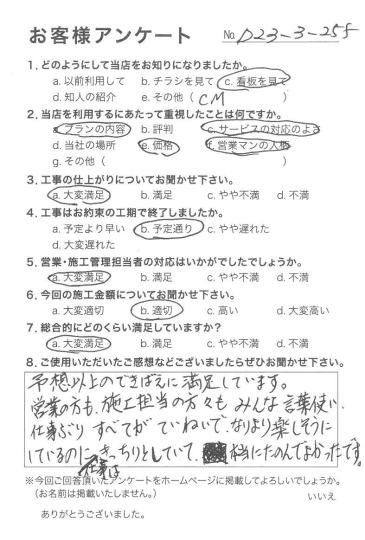 お客様アンケート No. D23-3-25f
1. どのようにして当店をお知りになりましたか。
a. 以前利用して b. チラシを見て c. 看板を見て
d. 知人の紹介 e. その他( CM )
2. 当店を利用するにあたって重視したことは何ですか。
a. プランの内容 b. 評判 c. サービスの対応のよさ
d. 当社の場所 e. 価格 f. 営業マンの人柄
g. その他( )
3. 工事の仕上がりについてお聞かせ下さい。
a. 大変満足 b. 満足 c. やや不満 d. 不満
4. 工事はお約束の工期で終了しましたか。
a. 予定より早い b. 予定通り c. やや遅れた
d. 大変遅れた
5. 営業・施工管理担当者の対応はいかがでしたでしょうか。
a. 大変満足 b. 満足 c. やや不満 d. 不満
6. 今回の施工金額についてお聞かせ下さい。
a. 大変適切 b. 適切 c. 高い d. 大変高い
7. 総合的にどのくらい満足していますか?
a. 大変満足 b. 満足 c. やや不満 d. 不満
8. ご使用いただいたご感想などございましたらぜひお聞かせ下さい。
予想以上のできばえに満足しています。
営業の方も、施工担当の方々も みんな言葉使い、
仕事ぶり すべてが ていねいで、なにより楽しそうに
しているのに、仕事はきっちりとしていて、本当にたのんでよかったです。
※今回ご回答頂いたアンケートをホームページに掲載してよろしいでしょうか。
(お名前は掲載いたしません。) いいえ
ありがとうございました。